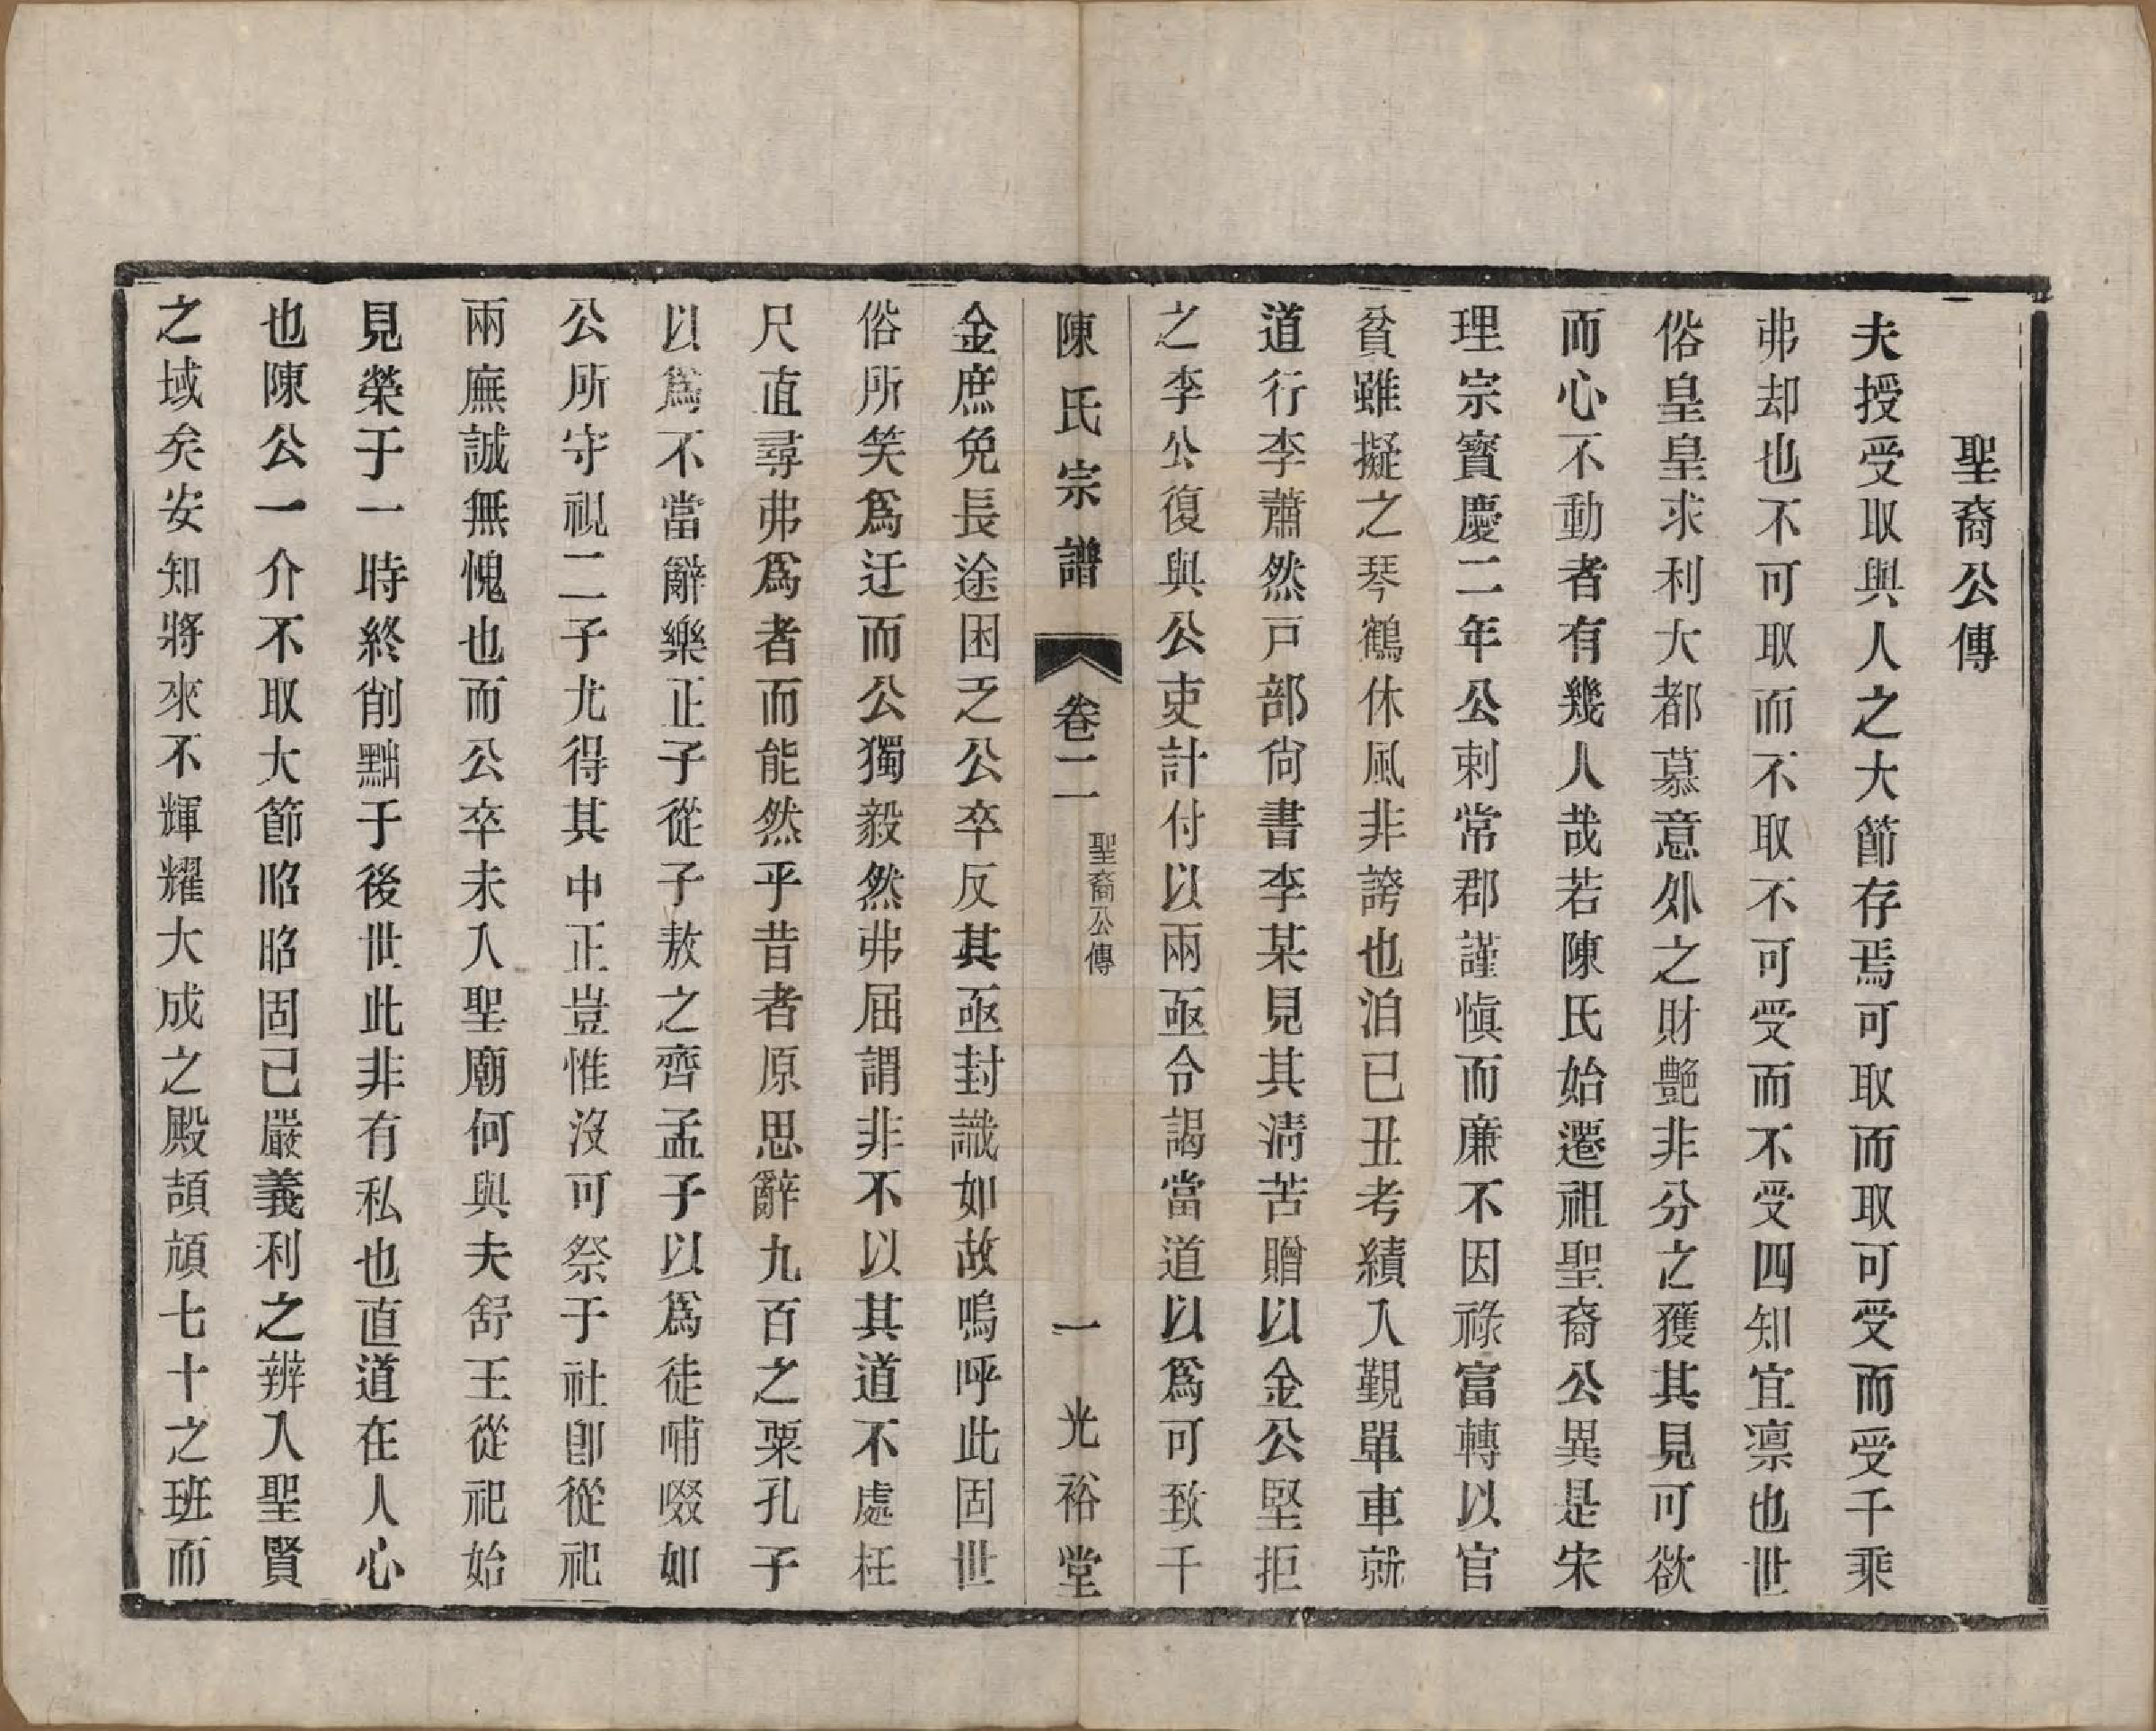 聖裔公傳
夫授受取與人之大節存焉可取而取可受而受千乘
弗却也不可取而不取不可受而不受四知宜凛也世
俗皇皇求利大都慕意外之財艷非分之獲其見可欲
而心不動者有幾人哉若陳氏始遷祖聖裔公異是宋
理宗寳慶二年公刺常郡謹慎而廉不因祿富轉以官
貧雖擬之琴鶴休風非誇也洎已丑考績入覲單車就
道行李蕭然戸部尙書李某見其淸苦贈以金公堅拒
之李公復與公吏計付以兩亟令謁當道以爲可致千
陳氏宗譜
卷二
聖裔公傳
一
光裕堂
金庶免長途困乏公卒反其亟封識如故嗚呼此固世
俗所笑爲迂而公獨毅然弗屈謂非不以其道不處枉
尺直尋弗爲者而能然乎昔者原思辭九百之粟孔子
以爲不當辭樂正子從子敖之齊孟子以爲徒哺啜如
公所守視二子尤得其中正豈惟沒可祭于社卽從祀
兩廡誠無愧也而公卒未入聖廟何與夫舒王從祀始
見榮于一時終削黜于後世此非有私也直道在人心
也陳公一介不取大節昭昭固己嚴義利之辨入聖賢
之域矣安知將來不輝耀大成之殿頡頏七十之班而